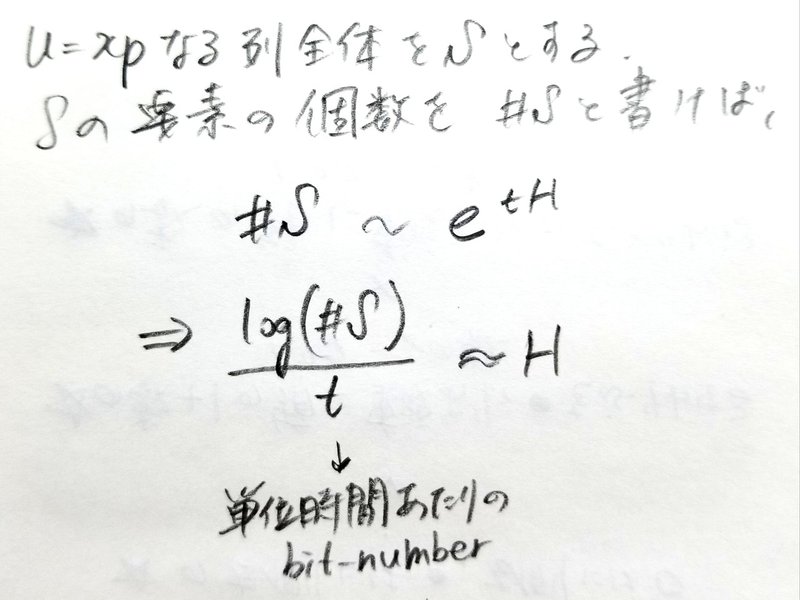 u=xpなる列全体をSとする.
Sの要素の個数を #Sと書けば,
#S ~ e^{tH}
⇒ log(#S)/t ≈ H
↓
単位時間あたりの
bit-number